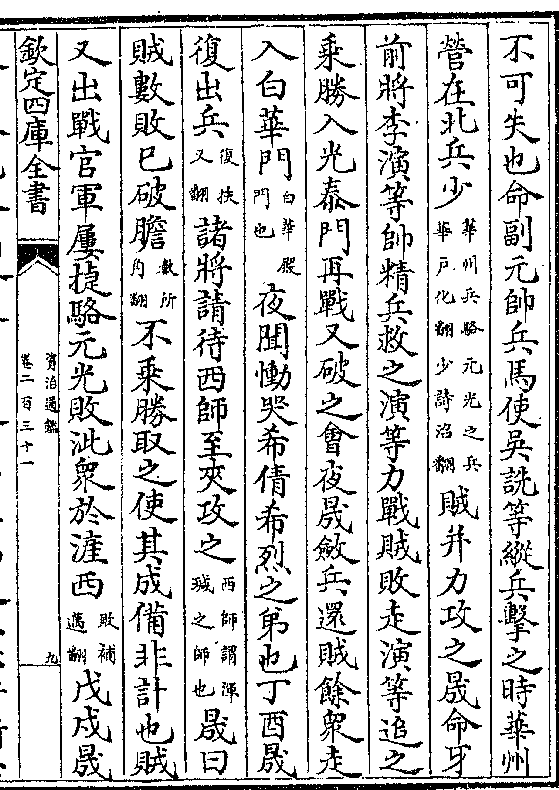 不可失也命副元帥兵馬使吳詵等縱兵擊之時華州
營在北兵少華州兵駱元光之兵華戸化翻少詩沼翻賊并力攻之晟命牙
前將李演等帥精兵救之演等力戰賊敗走演等追之
乘勝入光泰門再戰又破之會夜晟斂兵還賊餘衆走
入白華門白華殿門也夜聞慟哭希倩希烈之弟也丁酉晟
復出兵復扶又翻諸將請待西師至夾攻之西師謂渾瑊之師也晟曰
賊數敗已破膽數所角翻不乘勝取之使其成備非計也賊
又出戰官軍屢捷駱元光敗泚衆於滻西敗補邁翻戊戌晟
欽定四庫全書
資治通鑑
卷二百三十一
九